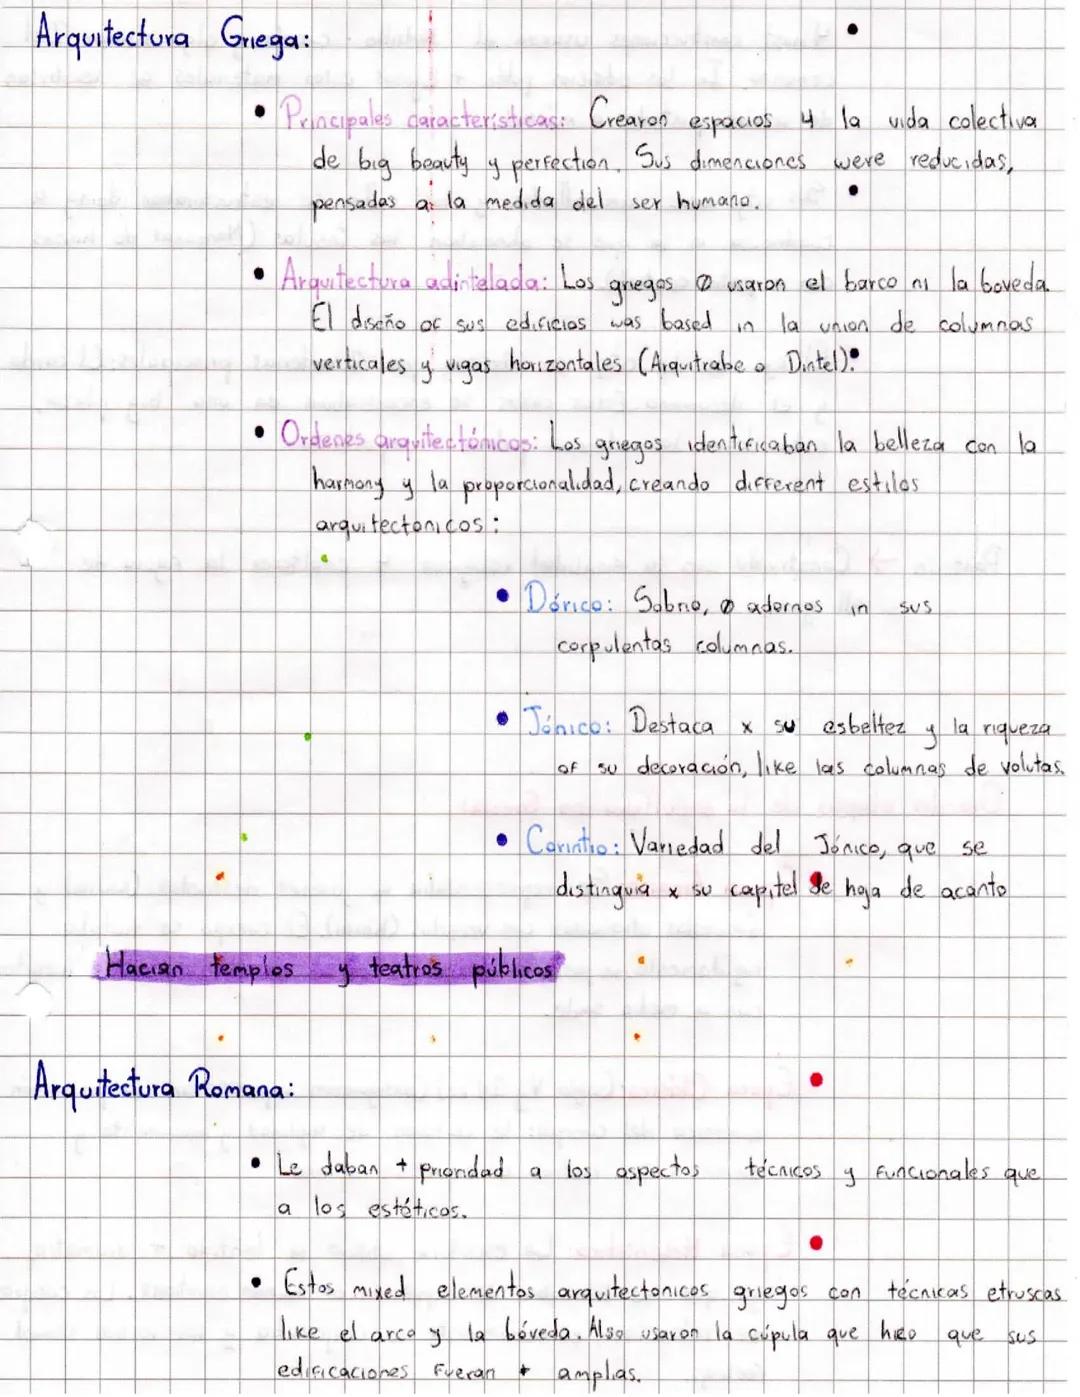 Arquitectura Griega:
• Principales características: Crearon espacios 4 la vida colectiva
de big beauty y perfection. Sus dimenciones were reducidas,
pensadas a la medida del ser humano.
• Arquitectura adintelada: Los griegos Ø usaron el barco ni la boveda.
El diseño of sus edificios was based in la union de columnas
verticales y vigas horizontales (Arquitrabe o Dintel).
• Ordenes arquitectónicos: Los griegos identificaban la belleza con la
harmony y la proporcionalidad, creando different estilos
arquitectonicos:
• Dórico: Sobrio, Ø adornos in sus
corpulentas columnas.
• Jónico: Destaca x su esbeltez y la riqueza
of su decoración, like las columnas de volutas.
• Corintio: Variedad del Jónico, que se
distinguia x su capitel de hoja de acanto
Hacian templos y teatros públicos
Arquitectura Romana:
• Le daban + prioridad a los aspectos técnicos y funcionales que
a los estéticos.
• Estos mixed elementos arquitectonicos griegos con técnicas etruscas
like el arco y la bóveda. Also usaron la cúpula que hizo que sus
edificaciones fueran + amplias.